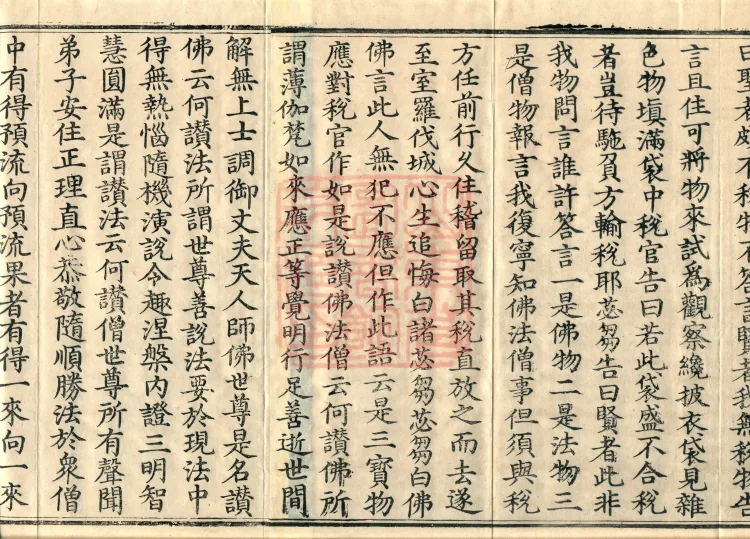 言且住可將物來試為觀察纔披衣袋見雜
色物填滿袋中稅官告曰若此袋盛不合稅
者豈待馳負方輸稅耶苾芻告曰賢者此非
我物問言誰許答言一是佛物二是法物三
是僧物報言我復寧知佛法僧事但須與稅
方任前行久住稽留取其稅直放之而去遂
至室羅伐城心生追悔白諸苾芻苾芻白佛
佛言此人無犯不應但作此語云是三寶物
應對稅官作如是說讚佛法僧云何讚佛所
謂薄伽梵如來應正等覺明行足善逝世間
解無上士調御丈夫天人師佛世尊是名讚
佛云何讚法所謂世尊善說法要於現法中
得無熱惱隨機演說令趣涅槃內證三明智
慧圓滿是謂讚法云何讚僧世尊所有聲聞
弟子安住正理直心恭敬隨順勝法於眾僧
中有得預流向預流果者有得一來向一來